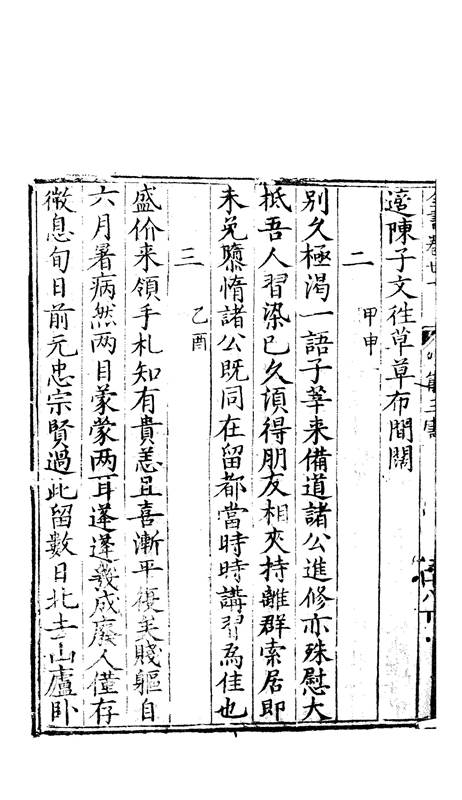 適陳子文往草草布間闊
二 甲申
別久極渴一語子莘来備道諸公進修亦殊慰大
抵吾人習染已久須得朋友相夾持離群索居即
未免隳惰諸公既同在留都當時時講習為佳也
三 乙酉
盛价来領手札知有貴恙且喜漸平復矣賤軀自
六月暑病然两目蒙蒙两耳蓬蓬幾成廢人僅存
微息旬日前元忠宗賢過此留數日北去山廬卧